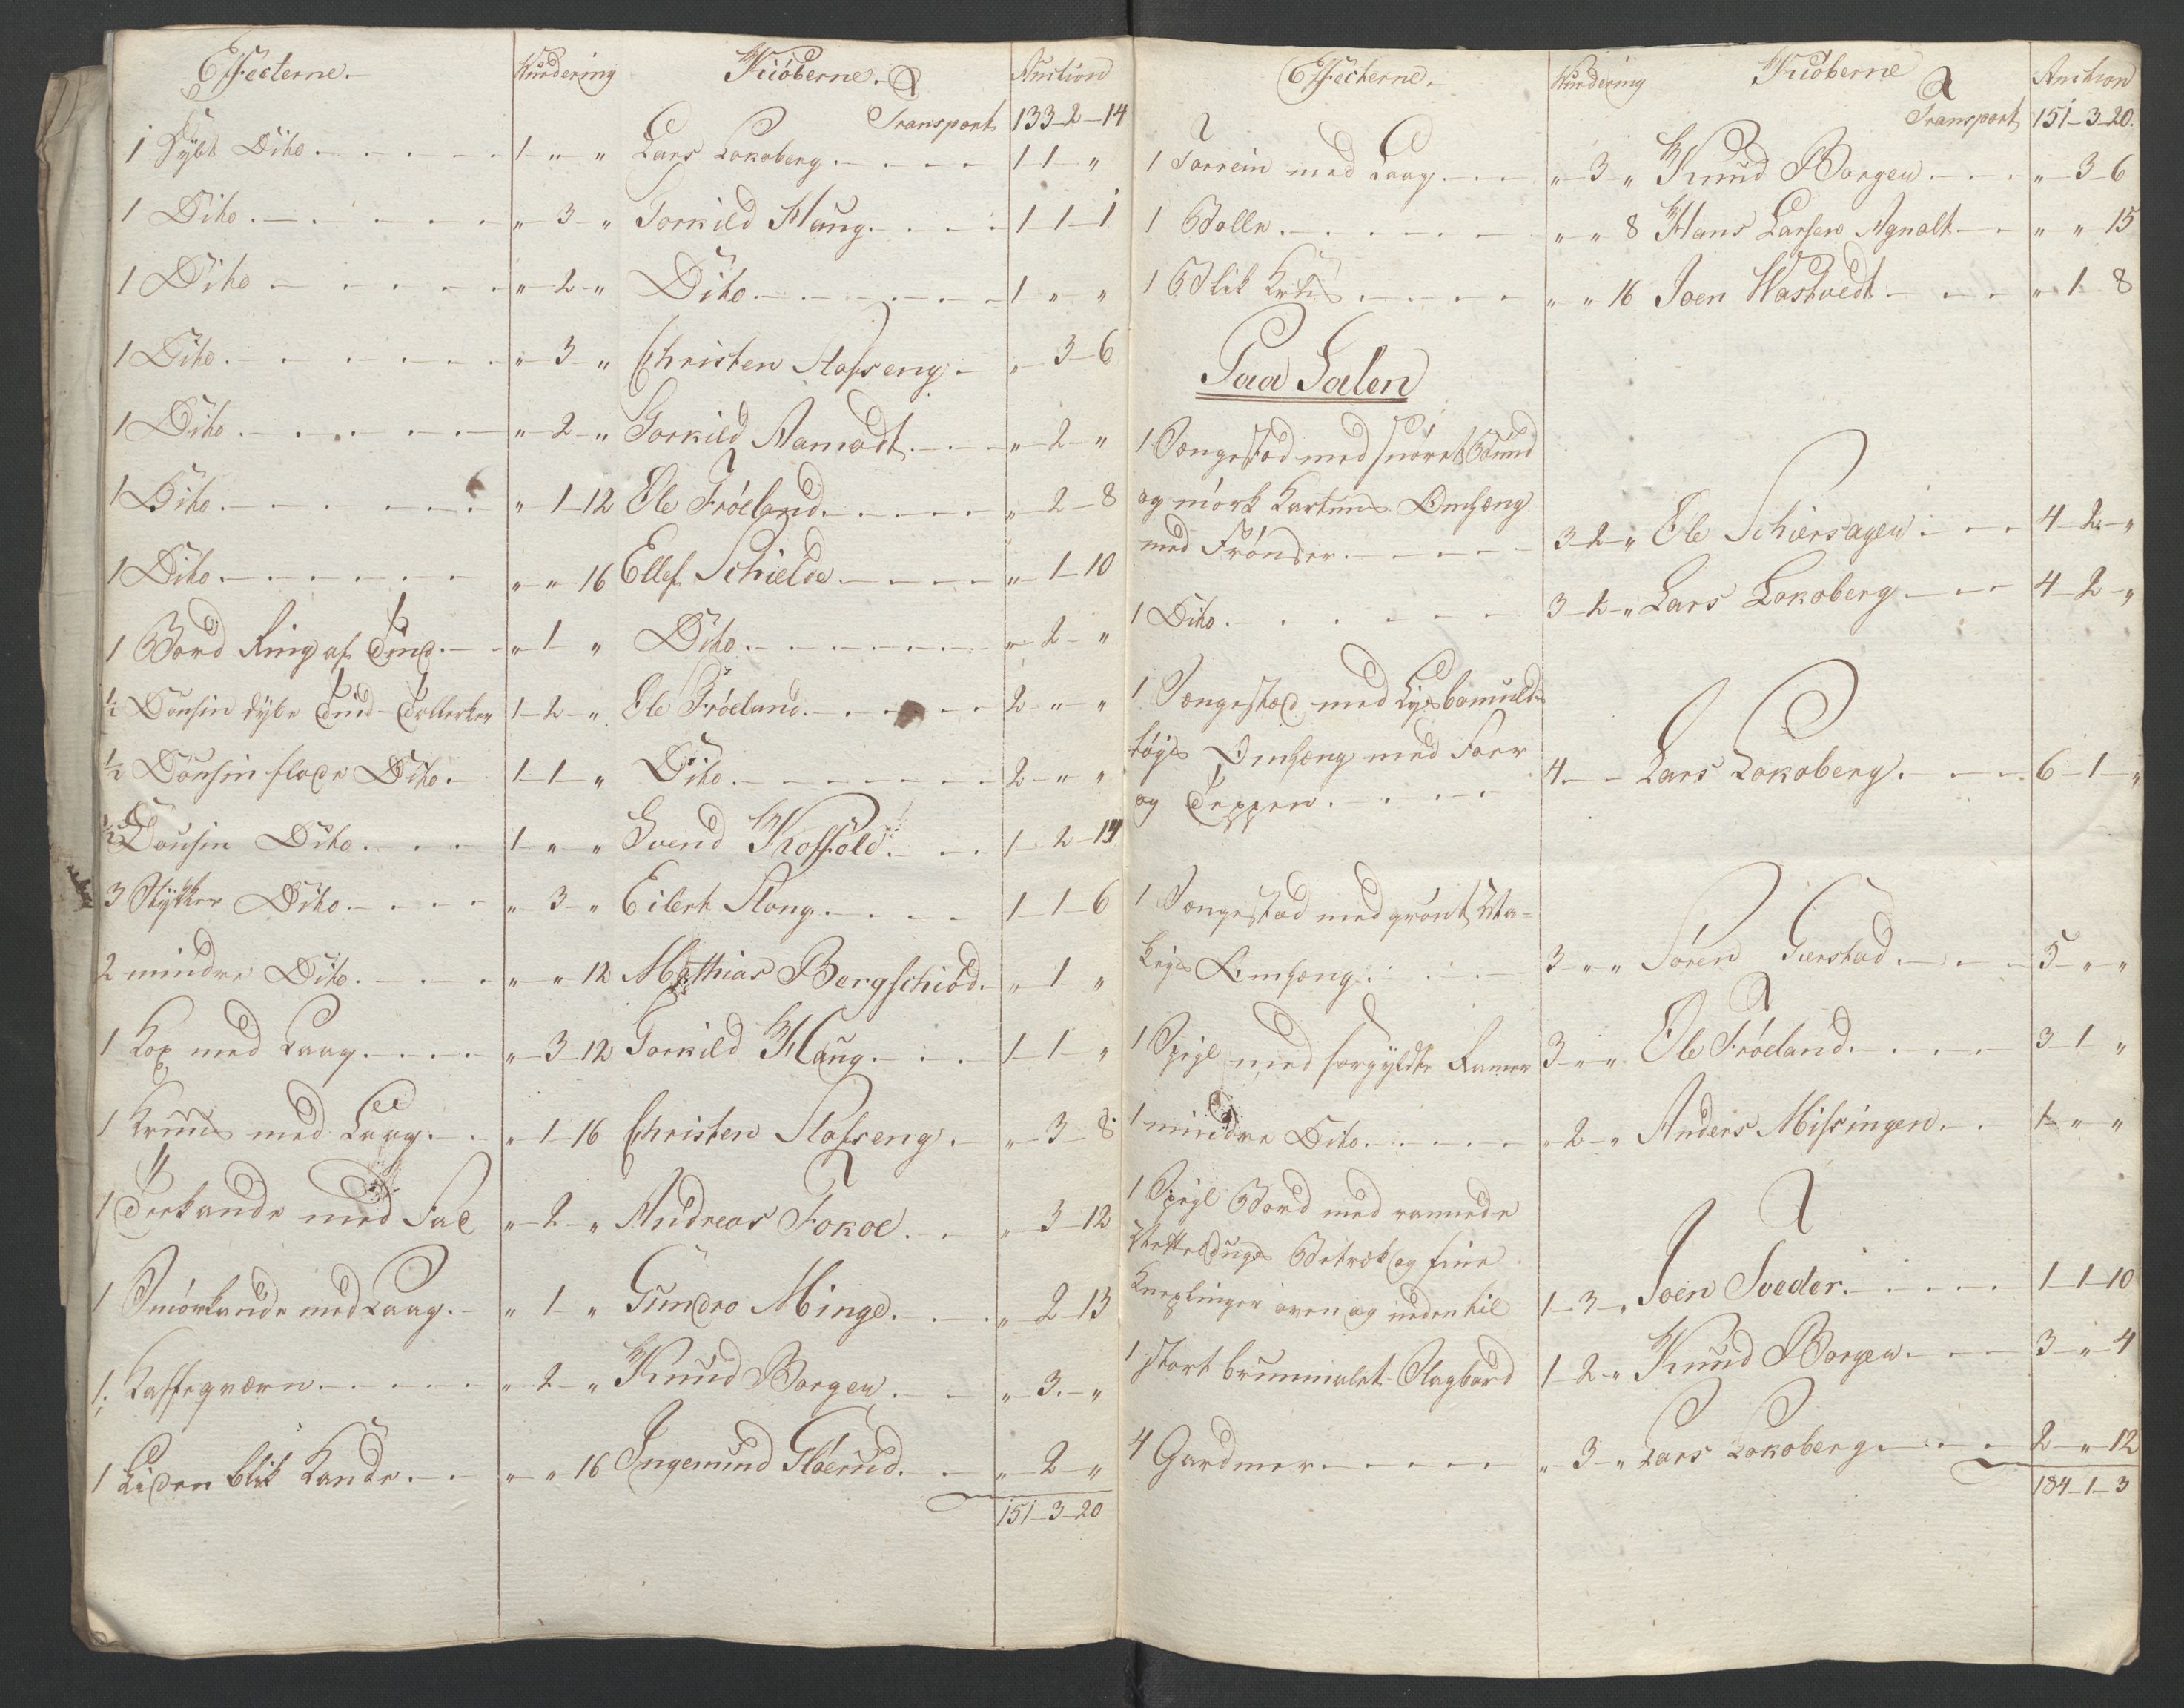 Effecterne. Vurdering Kiöberne. Auction
Transport 133-2-14
1 Dybt Dito 1 " " Lars Lokoberg 1 1 "
1 Dito " 3 " Torkild Haug 1 1 1
1 Dito " 2 " Dito 1 " "
1 Dito " 3 " Christen Stafseng " 3-6
1 Dito " 2 " Torkild Aamodt " 2 "
1 Dito " 1-12 Ole Fröeland " 2-8
1 Dito " " 16 Ellef Schielde " 1-10
1 Bord Ring af Tind " 1 " Dito " 2 "
½ Dousin dybe Tind-Tallerker 1-2-" Ole Fröeland 2 " "
½ Dousin flade Dito 1-1 " Dito 2 " "
½ Dousin Dito 1 " " Svend Kofföld 1-2-14
3 Stÿkker Dito " 3 " Eilert Stang 1-1-6
2 mindre Dito " " 12 Mathias Bergschiöd " 1 "
1 Kop med Laag " 3-12 Torkild Haug 1-1 "
1 Kruus med Laag " 1-16 Christen Stafseng " 3-8
1 Teekande med Fad " 2 " Andreas Fokoe " 3-12
1 Smörkande med Laag " 1 " Gundro Minge " 2-13
1 Kaffeqværn " 2 " Knud Borgen " 3 "
1 Liden blik Kande " " 16 Ingemund " 2 "
151-3-20
Effecterne. Vurdering Kiöberne Auction
Transport 151-3-20.
1 Tarrein med Laag " 3 " Knud Borgen " 3-6
1 Bolle " " 8 Hans Larsen Agnalt " " 15
1 Blik " " 16 Joen Hastvedt " 1-8
Paa Salen
1 Sengested med snöret Bund
og mörk Kartuns Omhæng
med Frönser 3-2-" Ole Schiersagen 4-2-"
1 Dito 3-2-" Lars Lokoberg 4-2-"
1 Sengested med Lys bomulds
töjs Omhæng med Foer
og Teppen 4 - - Lars Lokoberg 6-1-"
1 Sengested med grönt Sta-
kejs Omhæng 3 " " Sören Gierstad 5 " "
1 Spejl med forgyldte Ramer 3 " " Ole Fröeland 3-1 "
1 mindre Dito " 2 " Anders Missingen 1 " "
1 Spejl Bord med rannede
Nettelduugs Betræk og fine
Kneplinger oven og nedentil 1-3-" Joen Soeder 1-1-10
1 stort brunmalet Slagbord 1-2-" Knud Borgen 3-"-4
4 Gardiner " 3 " Lars Lokoberg 2-"-12
184-1-3